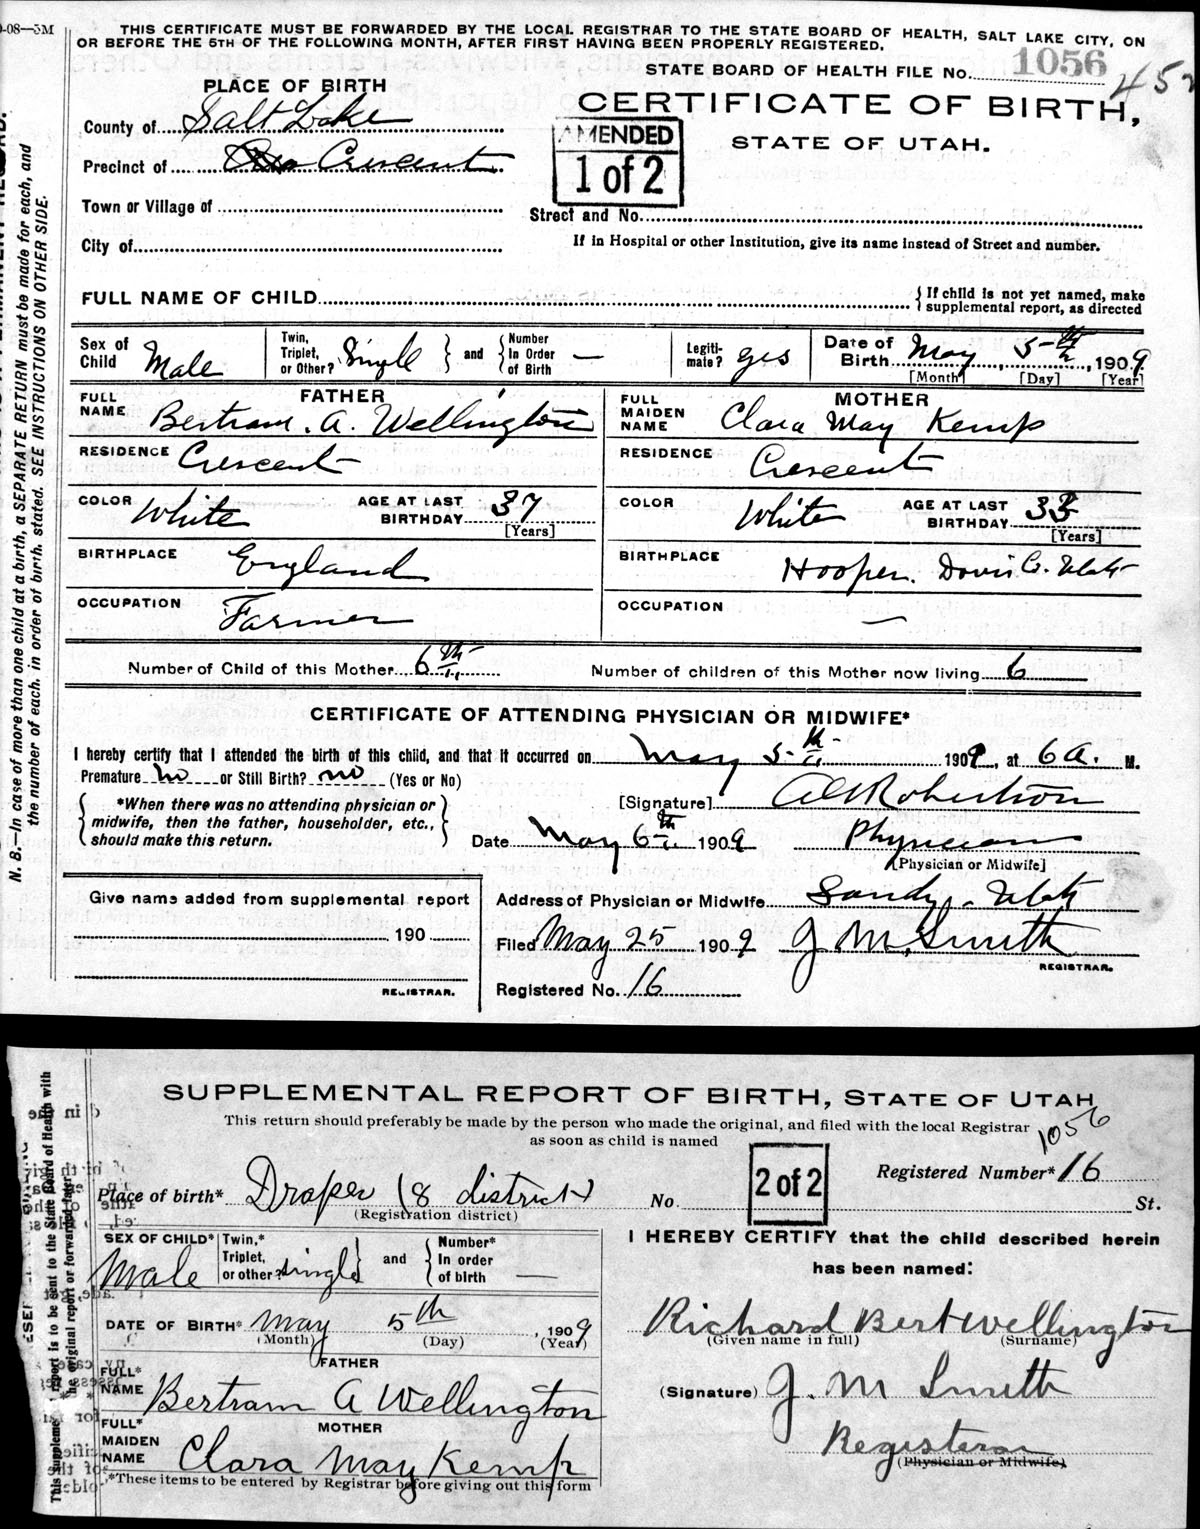 THIS CERTIFICATE MUST BE FORWARDED BY THE LOCAL REGISTRAR TO THE STATE BOARD OF HEALTH, SALT LAKE CITY, ON
OR BEFORE THE 5TH OF THE FOLLOWING MONTH, AFTER FIRST HAVING BEEN PROPERLY REGISTERED.
STATE BOARD OF HEALTH FILE No. 1056
PLACE OF BIRTH
CERTIFICATE OF BIRTH,
STATE OF UTAH.
AMENDED
1 of 2
County of Salt Lake
Precinct of Crescent
Town or Village of
Street and No.
City of
If in Hospital or other Institution, give its name instead of Street and number.
FULL NAME OF CHILD
{ If child is not yet named, make
supplemental report, as directed
Sex of Child Male
Twin, Triplet, or Other? Single } and { Number In Order of Birth —
Legiti-mate? yes
Date of Birth May 5th, 1909
[Month] [Day] [Year]
FATHER
FULL NAME Bertram. A. Wellington
MOTHER
FULL MAIDEN NAME Clara May Kemp
RESIDENCE Crescent
RESIDENCE Crescent
COLOR White AGE AT LAST BIRTHDAY 37 [Years]
COLOR White AGE AT LAST BIRTHDAY 33 [Years]
BIRTHPLACE England
BIRTHPLACE Hooper. Davis Co. Utah
OCCUPATION Farmer
OCCUPATION —
Number of Child of this Mother 6th
Number of children of this Mother now living 6
CERTIFICATE OF ATTENDING PHYSICIAN OR MIDWIFE*
I hereby certify that I attended the birth of this child, and that it occurred on May 5th 1909, at 6 a. M.
Premature no or Still Birth? no (Yes or No)
{ *When there was no attending physician or
midwife, then the father, householder, etc.,
should make this return. }
[Signature] Robertson
Date May 6th 1909 Physician
[Physician or Midwife]
Give name added from supplemental report
190
REGISTRAR.
Address of Physician or Midwife Sandy, Utah
Filed May 25 1909 J M. Smith
REGISTRAR.
Registered No. 16
N. B.—In case of more than one child at a birth, a SEPARATE RETURN must be made for each, and
the number of each, in order of birth, stated. SEE INSTRUCTIONS ON OTHER SIDE.
SUPPLEMENTAL REPORT OF BIRTH, STATE OF UTAH
This return should preferably be made by the person who made the original, and filed with the local Registrar
as soon as child is named
1056
2 of 2
Registered Number* 16
Place of birth* Draper (8 district) No. St.
(Registration district)
SEX OF CHILD* Male
Twin,* Triplet, or other? Single } and { Number* In order of birth —
DATE OF BIRTH* May 5th, 1909
(Month) (Day) (Year)
FATHER
FULL* NAME Bertram A Wellington
MOTHER
FULL* MAIDEN NAME Clara May Kemp
*These items to be entered by Registrar before giving out this form
I HEREBY CERTIFY that the child described herein
has been named:
Richard Bert Wellington
(Given name in full) (Surname)
(Signature) J. M Smith
Registerar
(Physician or Midwife)